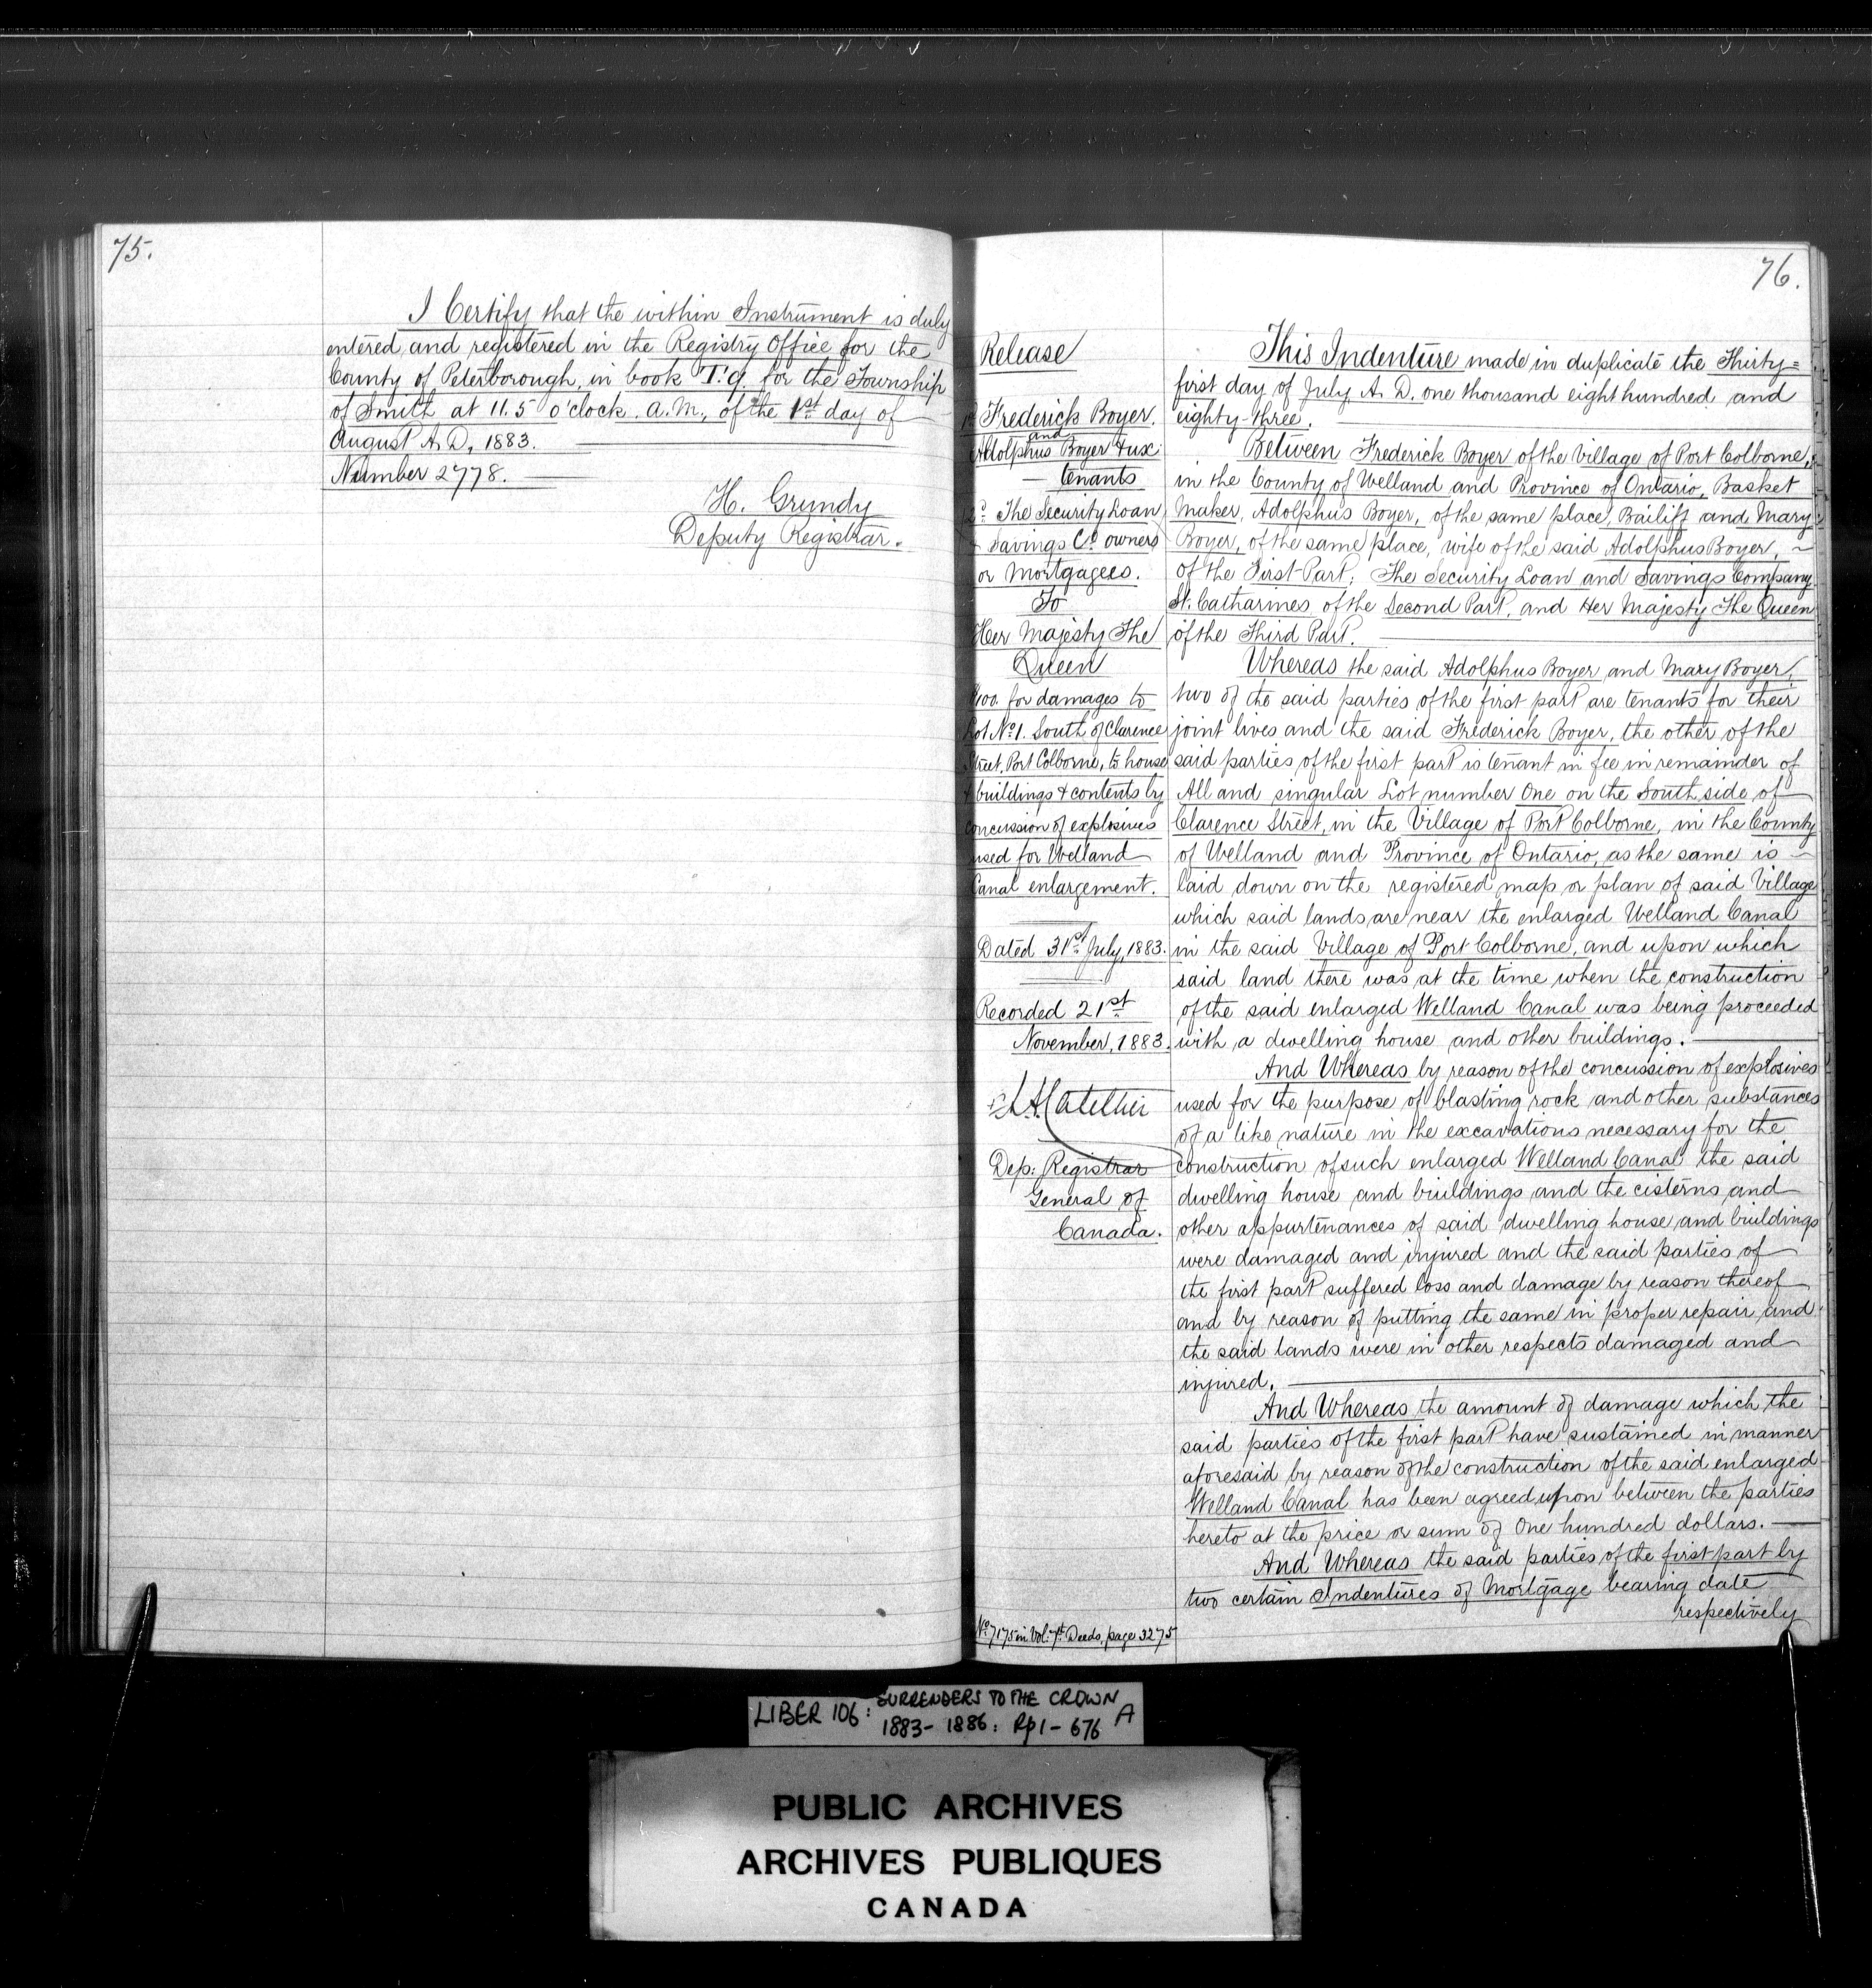 75.
I Certify that the within Instrument is duly
entered and registered in the Registry Office for the
County of Peterborough, in book T.9. for the Township
of Smith at 11.5 o'clock. a.m., of the 1st day of
August A.D, 1883.
Number 2778.
H. Grundy
Deputy Registrar.
76.
Release
Frederick Boyer.
and
Adolphus Boyer & ux
tenants
2º The Security Loan
& Savings Cº owners
or Mortgagees.
To
Her Majesty The
Queen
$100 for damages to
Lot Nº 1. South of Clarence
Street, Port Colborne, to house
& buildings & contents by
concussion of explosives
used for Welland
Canal enlargement.
Dated 31st July, 1883.
Recorded 21st
November, 1883.
Dep: Registrar
General of
Canada.
Nº 7175 in Vol: 7th Deeds, page 3275
This Indenture made in duplicate the Thirty=
first day of July A. D. one thousand eight hundred and
eighty-three.
Between Frederick Boyer of the Village of Port Colborne,
in the County of Welland and Province of Ontario, Basket
Maker, Adolphus Boyer, of the same place, Bailiff and Mary
Boyer, of the same place, wife of the said Adolphus Boyer,
of the First Part; The Security Loan and Savings Company
St. Catharines of the Second Part, and Her Majesty The Queen
of the Third Part.
Whereas the said Adolphus Boyer and Mary Boyer,
two of the said parties of the first part are tenants for their
joint lives and the said Frederick Boyer, the other of the
said parties of the first part is tenant in fee in remainder of
All and singular Lot number One on the South side of
Clarence Street, in the Village of Port Colborne, in the County
of Welland and Province of Ontario, as the same is
laid down on the registered map or plan of said Village
which said lands are near the enlarged Welland Canal
in the said Village of Port Colborne, and upon which
said land there was at the time when the construction
of the said enlarged Welland Canal was being proceeded
with a dwelling house and other buildings.
And Whereas by reason of the concussion of explosives
used for the purpose of blasting rock and other substances
of a like nature in the excavations necessary for the
construction of such enlarged Welland Canal the said
dwelling house and buildings and the cisterns and
other appurtenances of said dwelling house and buildings
were damaged and injured and the said parties of
the first part suffered loss and damage by reason thereof
and by reason of putting the same in proper repair and
the said lands were in other respects damaged and
injured.
And Whereas the amount of damage which the
said parties of the first part have sustained in manner
aforesaid by reason of the construction of the said enlarged
Welland Canal has been agreed upon between the parties
hereto at the price or sum of One hundred dollars.
And Whereas the said parties of the first part by
two certain Indentures of Mortgage bearing date
respectively
LIBER 106: SURRENDERS TO THE CROWN A
1883-1886: Rp 1-676
PUBLIC ARCHIVES
ARCHIVES PUBLIQUES
CANADA